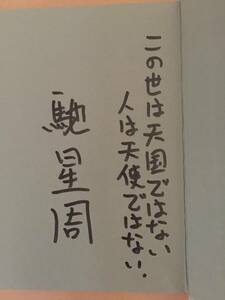 この世は天国ではない
人は天使ではない.
馳星周